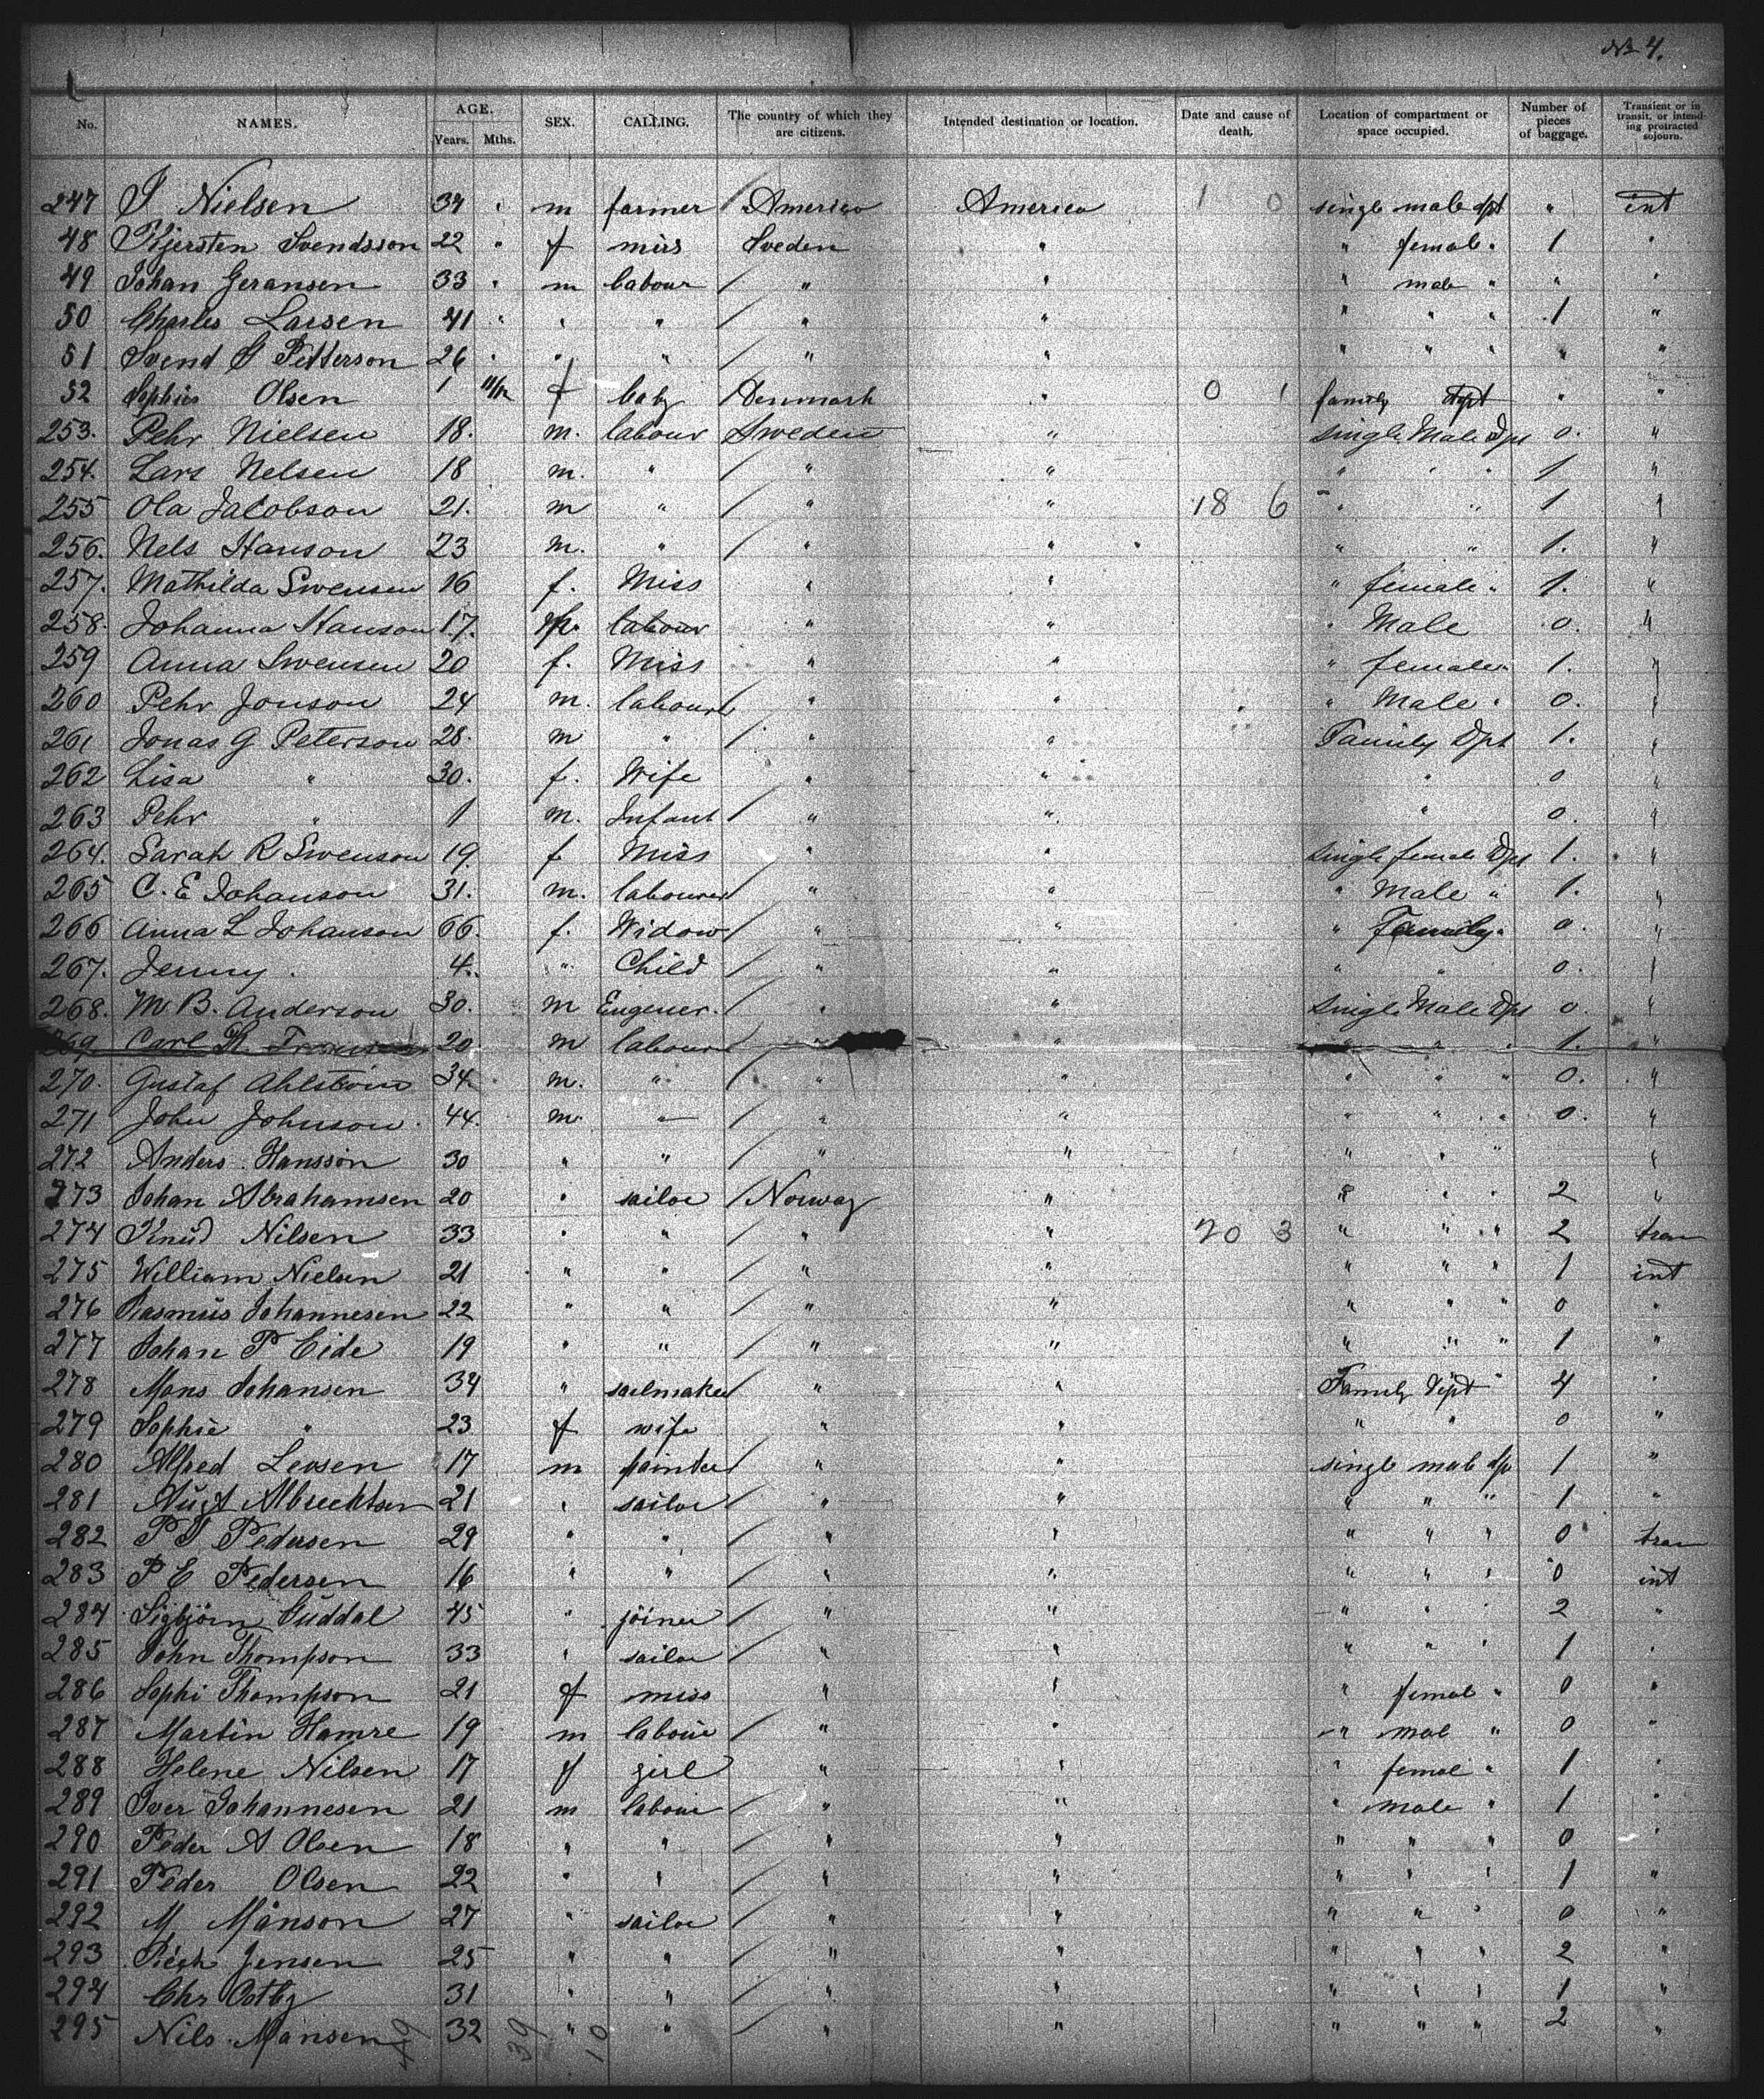 No 4.
No. NAMES. AGE. Years. Mths. SEX. CALLING. The country of which they are citizens. Intended destination or location. Date and cause of death. Location of compartment or space occupied. Number of pieces of baggage. Transient or in transit, or intending protracted sojourn.
247 J Nielsen 34 " m farmer America America 1 0 single male dpt " int
48 Kjersten Svendsson 22 " f miss Sveden " " female " 1 "
49 Johan Geransen 33 " m labour " " " male " " "
50 Charles Larsen 41 " " " " " " " " 1 "
51 Svend J Petterson 26 " " " " " " " " " "
52 Sophie Olsen 1 11/12 f baby Denmark " 0 1 family dpt " "
253. Pehr Nielsen 18. m. labour Sweden " single Male Dpt 0. "
254. Lars Nelsen 18 m. " " " " " " 1 "
255 Ola Jacobson 21. m " " " 18 6 " " 1 "
256. Nels Hanson 23 m. " " " " " 1. "
257. Mathilda Swensen 16 f. Miss " " " female " 1. "
258. Johanna Hanson 17. labour " " " Male 0. "
259 Anna Swensen 20 f. Miss " " " female " 1. "
260 Pehr Jonson 24 m. labourer " " " Male " 0. "
261 Jonas G Peterson 28. m " " " Family Dpt 1. "
262 Lisa " 30. f. Wife " " " 0 "
263 Pehr " 1 m. Infant " " " 0. "
264. Sarah R Swenson 19. f Miss " " single female Dpt 1. "
265 C. E Johanson 31. m. labourer " " " Male " 1. "
266 Anna L Johanson 66. f. Widow " " " Family " 0. "
267. Jenny 4. " Child " " " " 0. "
268. M B. Anderson 30. m Eugener. " " single Male Dpt 0. "
269 Carl 20. m labourer " " " " 1. "
270. Gustaf Ahlström 34. m. " " " " " " 0. "
271 John Johnson. 44. m. " " " " " " 0. "
272 Anders Hansson 30 " " " " " " " "
273 Johan Abrahamsen 20 " sailor Norway " " " " 2 "
274 Knud Nilsen 33 " " " " 20 3 " " " 2 tran
275 William Nielsen 21 " " " " " " " 1 int
276 Rasmus Johannesen 22 " " " " " " " 0 "
277 Johan P Eide 19 " " " " " " " 1 "
278 Mons Johansen 34 " sailmaker " " Family dept " 4 "
279 Sophie " 23 f wife " " " " 0 "
280 Alfred Levsen 17 m painter " " single male dpt 1 "
281 Aug A Albrechtsen 21 " sailor " " " " " 1 "
282 P T Pedersen 29 " " " " " " " 0 tran
283 P E Pedersen 16 " " " " " " " 0 int
284 Sigbjörn Guddal 45 " joiner " " " " " 2 "
285 John Thompson 33 " sailor " " " " " 1 "
286 Sophi Thompson 21 f miss " " " female " 0 "
287 Martin Hamre 19 m labour " " " male " 0 "
288 Helene Nilsen 17 f girl " " " female " 1 "
289 Iver Johannesen 21 m labour " " " male " 1 "
290 Peder A Olsen 18 " " " " " " " 0 "
291 Peder Olsen 22 " " " " " " " 1 "
292 M Månson 27 " sailor " " " " " 0 "
293 Jensen 25 " " " " " " " 2 "
294 Chr Ostby 31 " " " " " " " 1 "
295 Nils Mansen 32 " " " " " " " 2 "
49 39 10